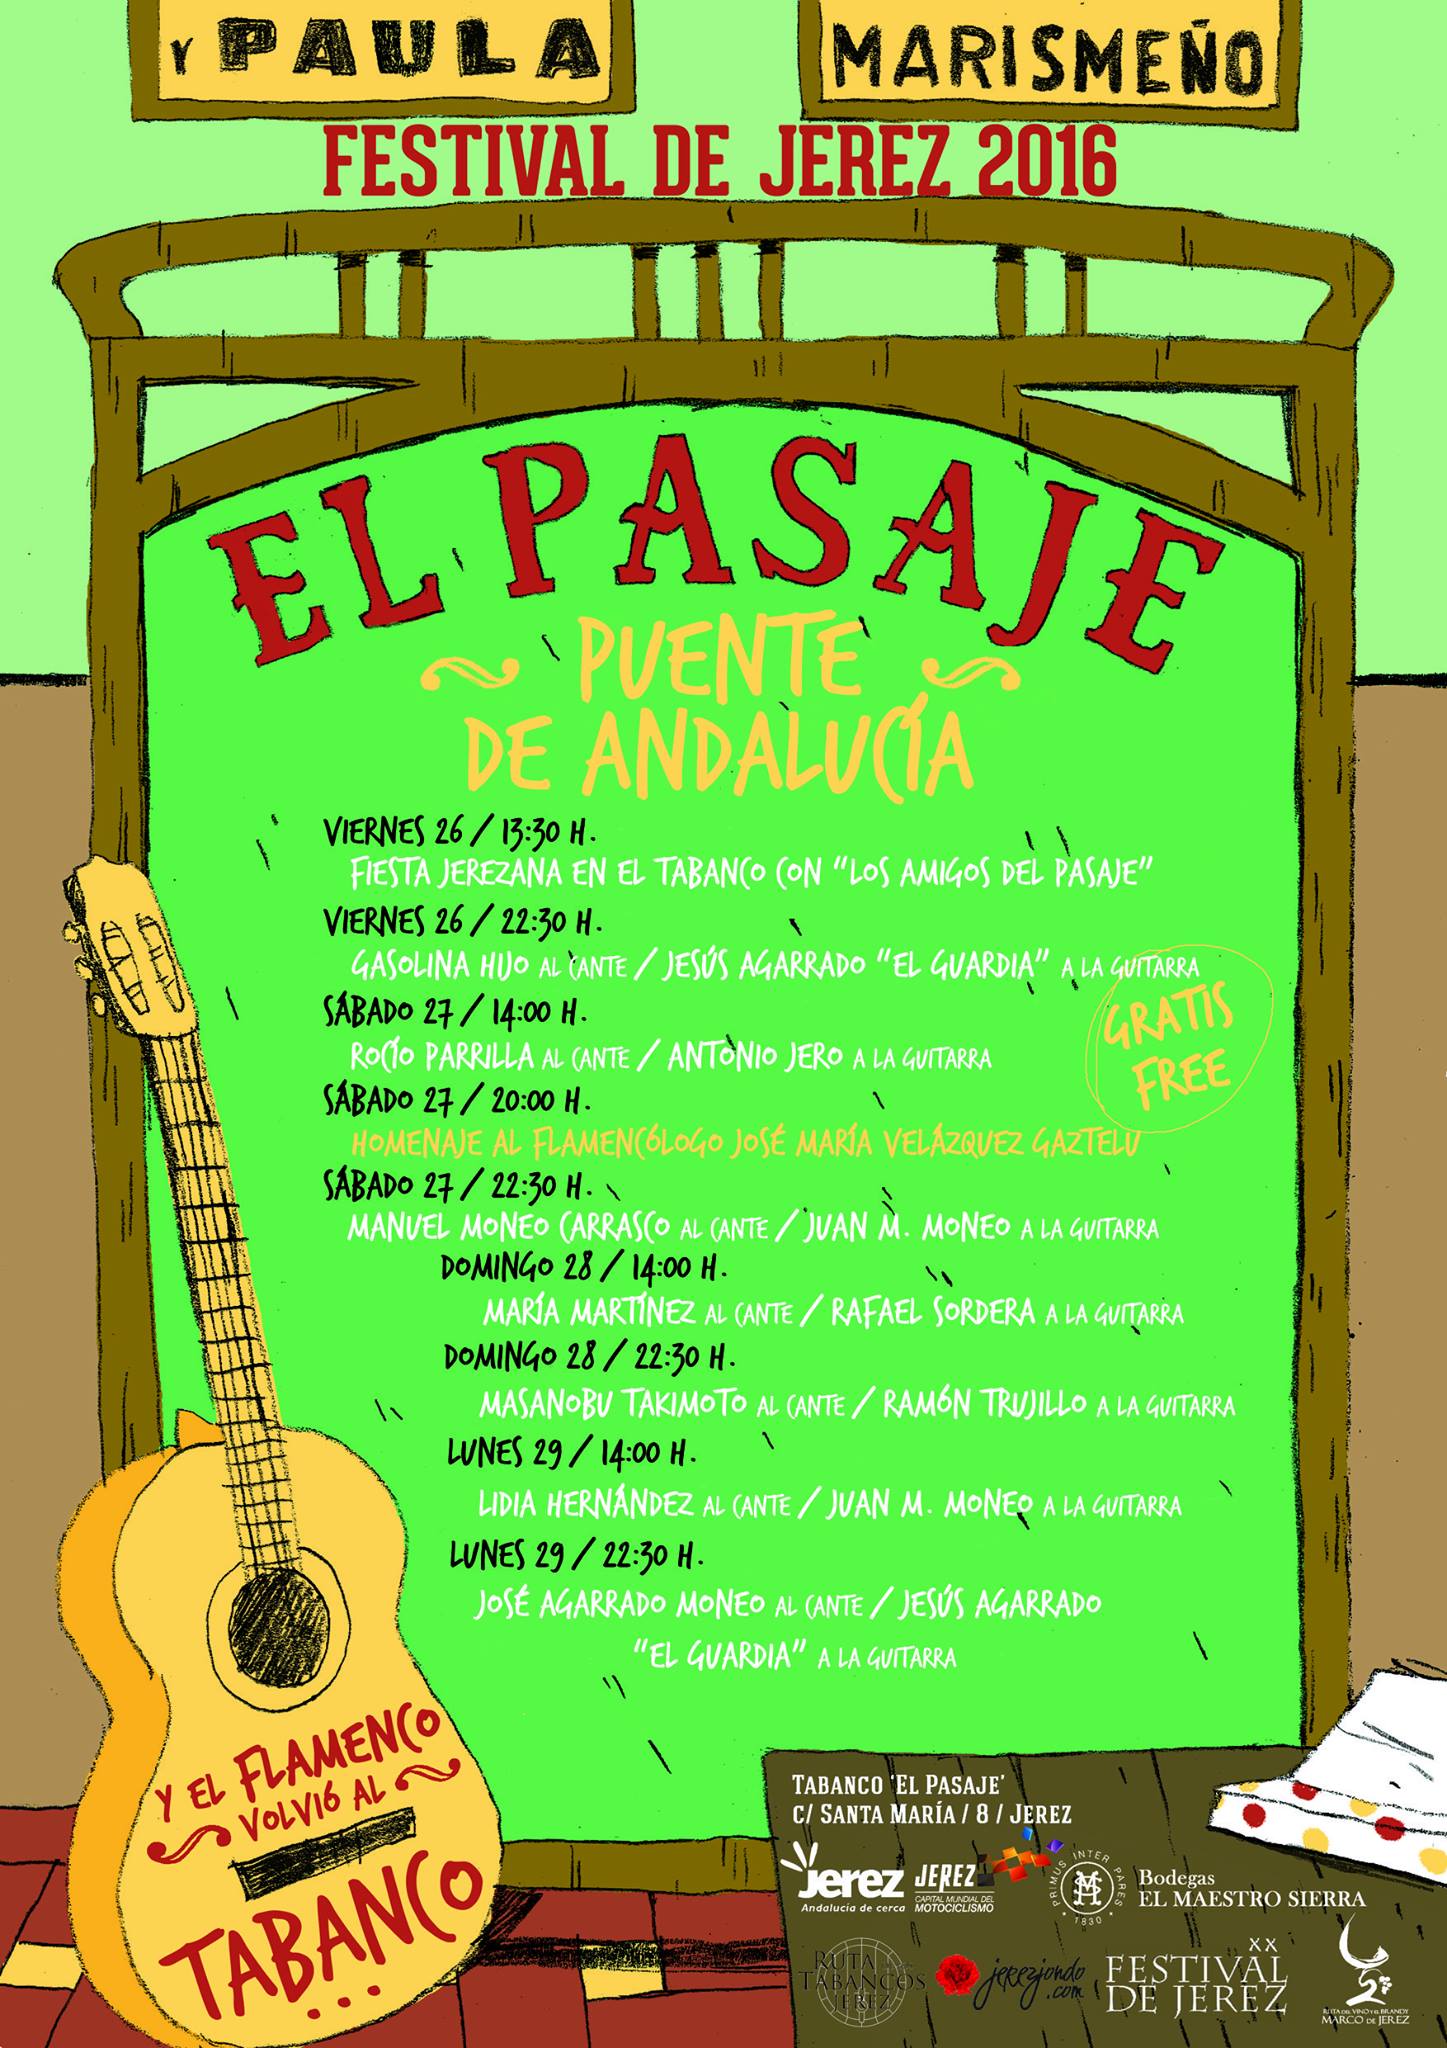 Y PAULA
MARISMEÑO
FESTIVAL DE JEREZ 2016
EL PASAJE
PUENTE
DE ANDALUCÍA
VIERNES 26 / 13:30 H.
FIESTA JEREZANA EN EL TABANCO CON "LOS AMIGOS DEL PASAJE"
VIERNES 26 / 22:30 H.
GASOLINA HIJO AL CANTE / JESÚS AGARRADO "EL GUARDIA" A LA GUITARRA
SÁBADO 27 / 14:00 H.
ROCÍO PARRILLA AL CANTE / ANTONIO JERO A LA GUITARRA
GRATIS
FREE
SÁBADO 27 / 20:00 H.
HOMENAJE AL FLAMENCÓLOGO JOSÉ MARÍA VELÁZQUEZ GAZTELU
SÁBADO 27 / 22:30 H.
MANUEL MONEO CARRASCO AL CANTE / JUAN M. MONEO A LA GUITARRA
DOMINGO 28 / 14:00 H.
MARÍA MARTÍNEZ AL CANTE / RAFAEL SORDERA A LA GUITARRA
DOMINGO 28 / 22:30 H.
MASANOBU TAKIMOTO AL CANTE / RAMÓN TRUJILLO A LA GUITARRA
LUNES 29 / 14:00 H.
LIDIA HERNÁNDEZ AL CANTE / JUAN M. MONEO A LA GUITARRA
LUNES 29 / 22:30 H.
JOSÉ AGARRADO MONEO AL CANTE / JESÚS AGARRADO
"EL GUARDIA" A LA GUITARRA
Y EL FLAMENCO
VOLVIÓ AL
TABANCO
...
TABANCO 'EL PASAJE'
C/ SANTA MARÍA / 8 / JEREZ
Jerez
Andalucía de cerca
JEREZ
CAPITAL MUNDIAL DEL
MOTOCICLISMO
PRIMUS INTER PARES
1830
Bodegas
EL MAESTRO SIERRA
RUTA
TABANCOS
JEREZ
jerezjondo
.com
XX
FESTIVAL
DE JEREZ
RUTA DEL VINO Y EL BRANDY
MARCO DE JEREZ